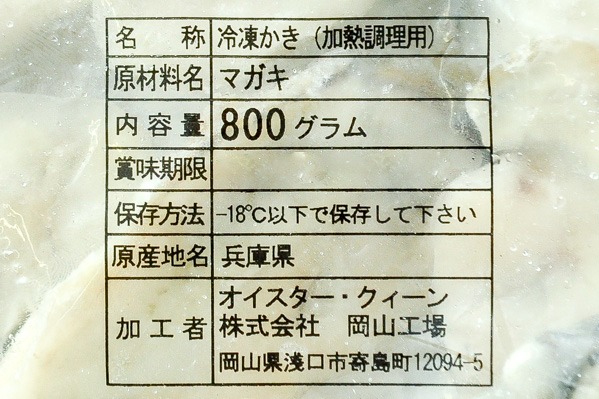 名称 冷凍かき（加熱調理用）
原材料名 マガキ
内容量 800グラム
賞味期限
保存方法 -18℃以下で保存して下さい
原産地名 兵庫県
加工者 オイスター・クィーン
株式会社 岡山工場
岡山県浅口市寄島町12094-5